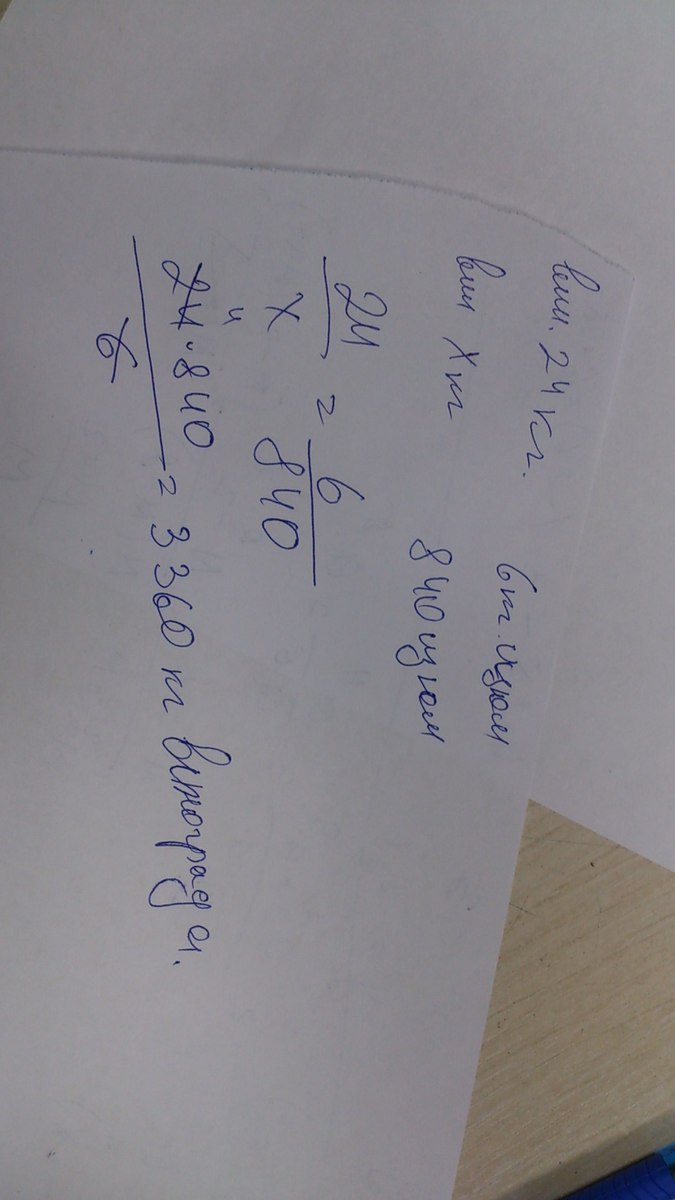 вин. 24 кг. 6 кг. изюм
вин х кг 840 изюм
24/х = 6/840
24·840/6 = 3360 кг винограда.
4